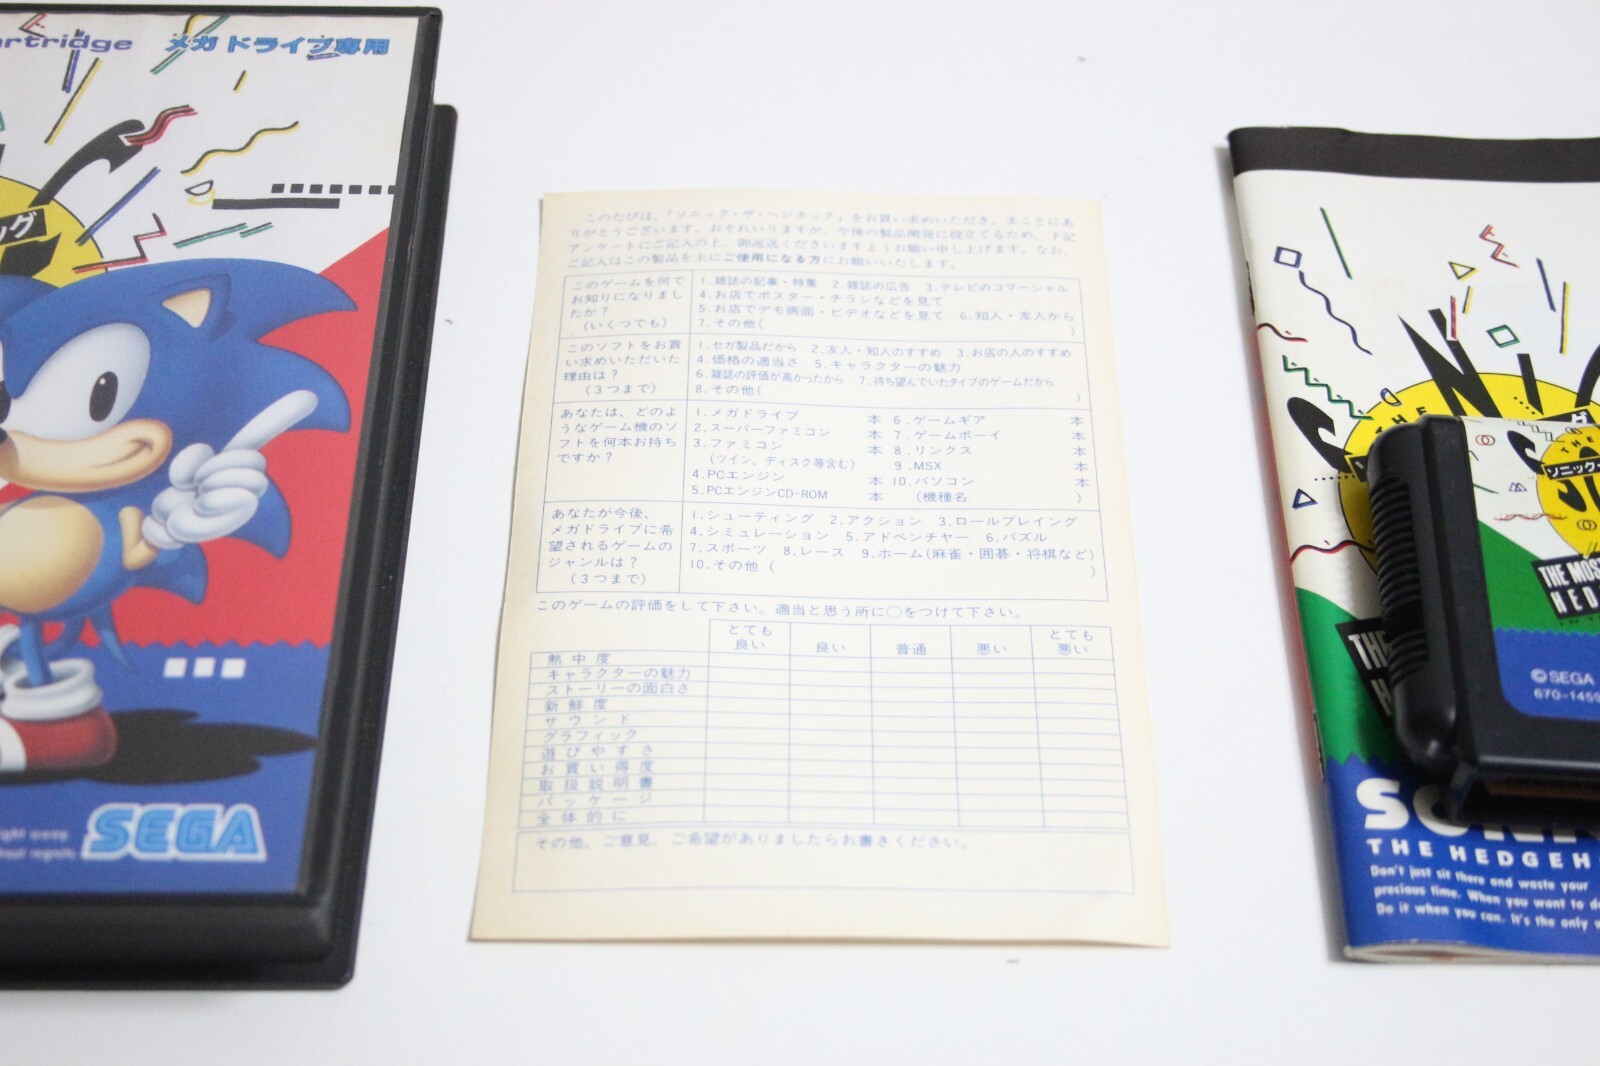 artridge メガドライブ専用
ング
SEGA
このたびは、「ソニック・ザ・ヘッジホッグ」をお買い求めいただき、まことにあ
りがとうございます。おそれいりますが、今後の製品開発に役立てるため、下記
アンケートにご記入の上、御返送くださいますようお願い申し上げます。なお、
ご記入はこの製品を主にご使用になる方にお願いいたします。
このゲームを何で
お知りになりまし
たか?
(いくつでも)
1.雑誌の記事・特集 2.雑誌の広告 3.テレビのコマーシャル
4.お店でポスター・チラシなどを見て
5.お店でデモ画面・ビデオなどを見て 6.知人・友人から
7.その他( )
このソフトをお買
い求めいただいた
理由は?
(3つまで)
1.セガ製品だから 2.友人・知人のすすめ 3.お店の人のすすめ
4.価格の適当さ 5.キャラクターの魅力
6.雑誌の評価が高かったから 7.待ち望んでいたタイプのゲームだから
8.その他( )
あなたは、どのよ
うなゲーム機のソ
フトを何本お持ち
ですか?
1.メガドライブ 本 6.ゲームギア 本
2.スーパーファミコン 本 7.ゲームボーイ 本
3.ファミコン 本 8.リンクス 本
(ツイン、ディスク等含む) 9.MSX 本
4.PCエンジン 本 10.パソコン 本
5.PCエンジンCD-ROM 本 (機種名 )
あなたが今後、
メガドライブに希
望されるゲームの
ジャンルは?
(3つまで)
1.シューティング 2.アクション 3.ロールプレイング
4.シミュレーション 5.アドベンチャー 6.パズル
7.スポーツ 8.レース 9.ホーム(麻雀・囲碁・将棋など)
10.その他 ( )
このゲームの評価をして下さい。適当と思う所に○をつけて下さい。
とても
良い 良い 普通 悪い とても
悪い
熱中度
キャラクターの魅力
ストーリーの面白さ
新鮮度
サウンド
グラフィック
遊びやすさ
お買い得度
取扱説明書
パッケージ
全体的に
その他、ご意見、ご希望がありましたらお書きください。
THE
ソニック
THE MOS
HED
©SEGA
THE HEDGEH
Don't just sit there and waste your
precious time. When you want to d
Do it when you can. It's the only